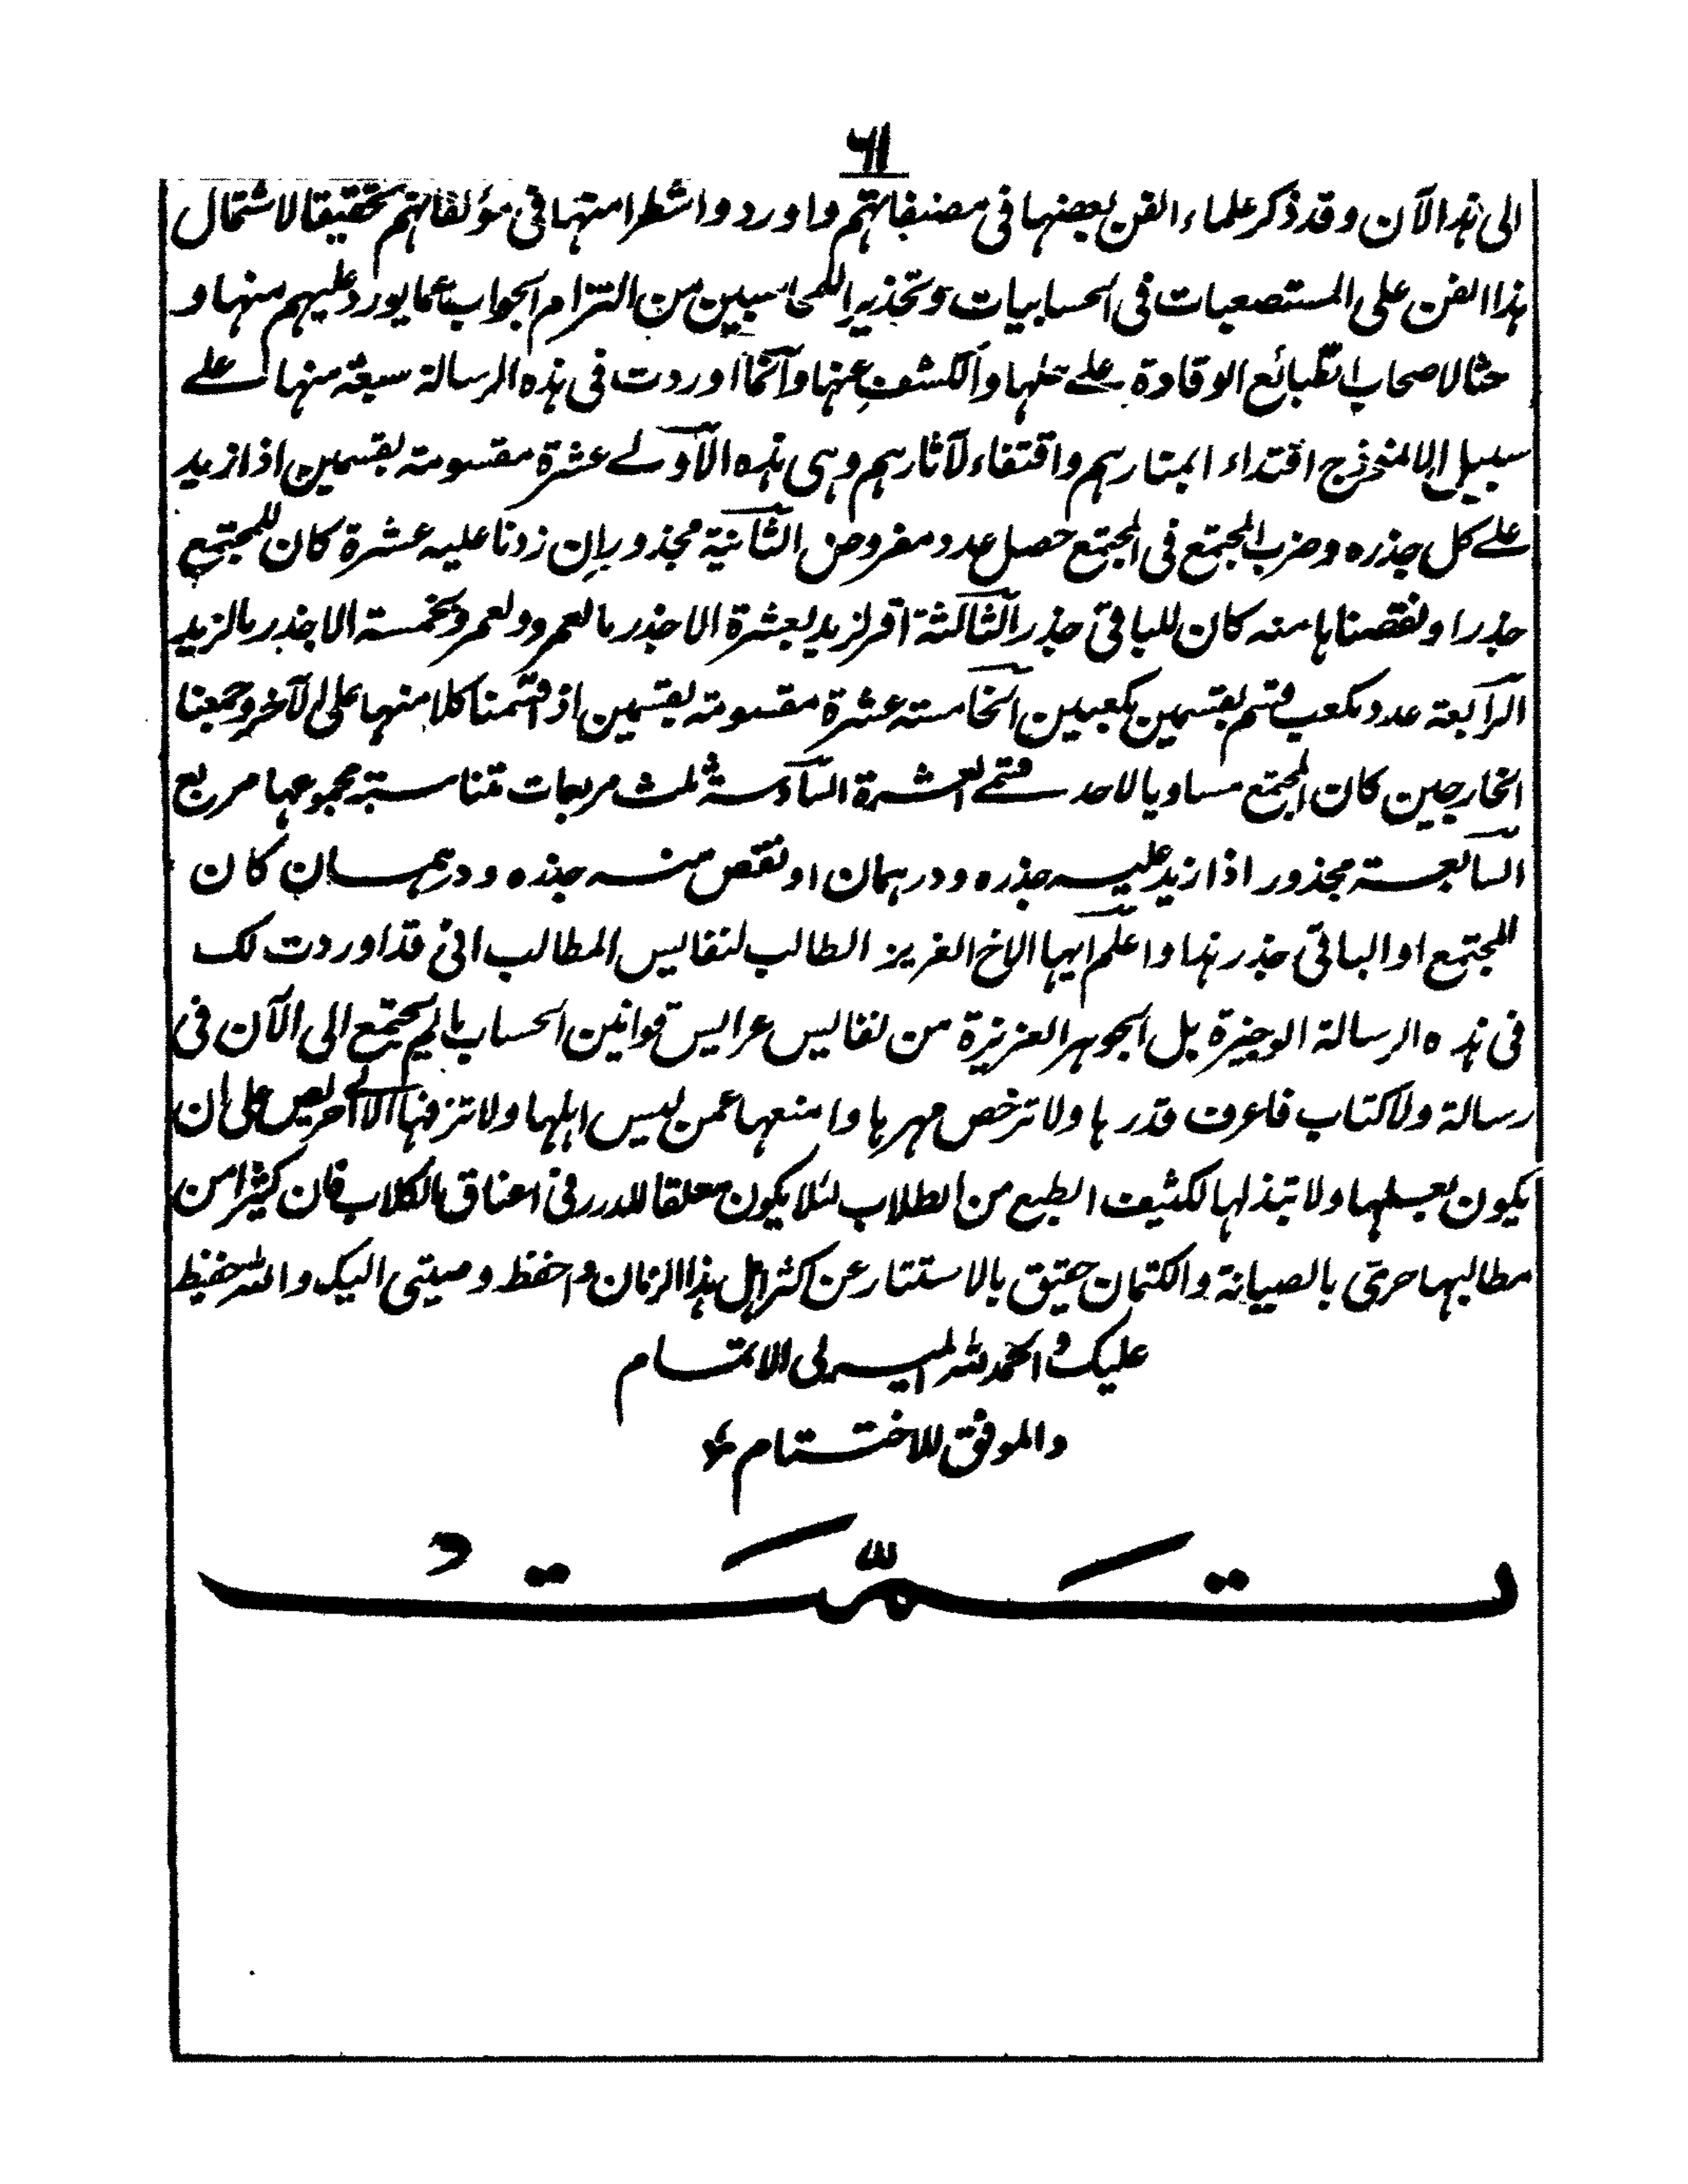 ٦١
الى هذا الآن وقد ذكر علماء الفن بعضها فى مصنفاتهم واوردوا شطرا منها فى مؤلفاتهم تحقيقا لاشتمال
هذا الفن على المستصعبات فى الحسابيات وتحذيرا للمحاسبين من التزام الجواب عما يورد عليهم منها و
حثا لاصحاب الطبائع الوقادة على حلها والكشف عنها وانما اوردت فى هذه الرسالة سبعة منها على
سبيل الانموذج اقتداء بمنارهم واقتفاء لآثارهم وهى هذه الاولى عشرة مقسومة بقسمين اذا زيد
على كل جذره وضرب المجتمع فى المجتمع حصل عدد مفروض الثانية مجذور ان زدنا عليه عشرة كان للمجتمع
جذر او نقصناها منه كان للباقى جذر الثالثة اقر لزيد بعشرة الا جذر ما لعمرو ولعمرو بخمسة الا جذر ما لزيد
الرابعة عدد مكعب قسم بقسمين مكعبين الخامسة عشرة مقسومة بقسمين اذ اقسمنا كلا منها على الآخر وجمعنا
الخارجين كان المجتمع مساويا لاحد قسمى العشرة السادسة ثلث مربعات متناسبة مجموعها مربع
السابعة مجذور اذا زيد عليه جذره ودرهمان او نقص منه جذه ودرهمان كان
للمجتمع او الباقى جذر هذا واعلم ايها الاخ العزيز الطالب لنفايس المطالب انى قد اوردت لك
فى هذه الرسالة الوجيزة بل الجوهر العزيزة من نفايس عرايس قوانين الحساب ما لم يجتمع الى الآن فى
رسالة ولا كتاب فاعرف قدرها ولا ترخص مهرها وامنعها عمن ليس اهلها ولا تزفها الا الى حريص على ان
يكون بعلها ولا تبذلها لكثيف الطبع من الطلاب لئلا يكون معلقا للدرر فى اعناق الكلاب فان كثيرا من
مطالبها حرى بالصيانة والكتمان حقيق بالاستتار عن اكثر اهل هذا الزمان واحفظ وصيتى اليك والله حفيظ
عليك والحمد لله الميسر لى للاتمام
والموفق للاختتام
تمت